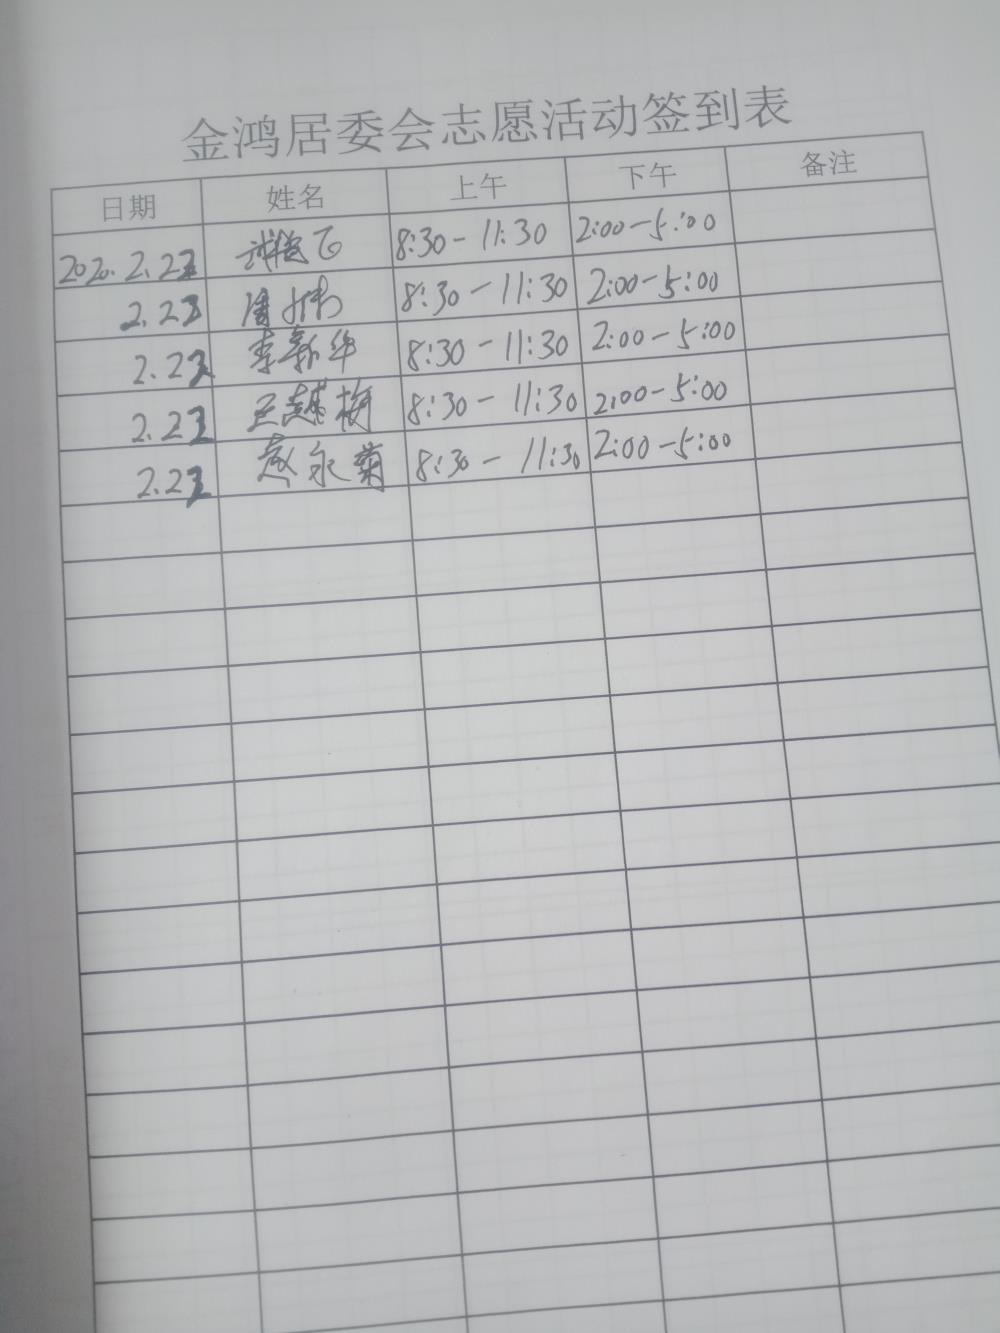 金鸿居委会志愿活动签到表
日期 姓名 上午 下午 备注
2020.2.23 飞 8:30-11:30 2:00-5:00
2.23 8:30-11:30 2:00-5:00
2.23 李新华 8:30-11:30 2:00-5:00
2.23 王越梅 8:30-11:30 2:00-5:00
2.23 赵永菊 8:30-11:30 2:00-5:00